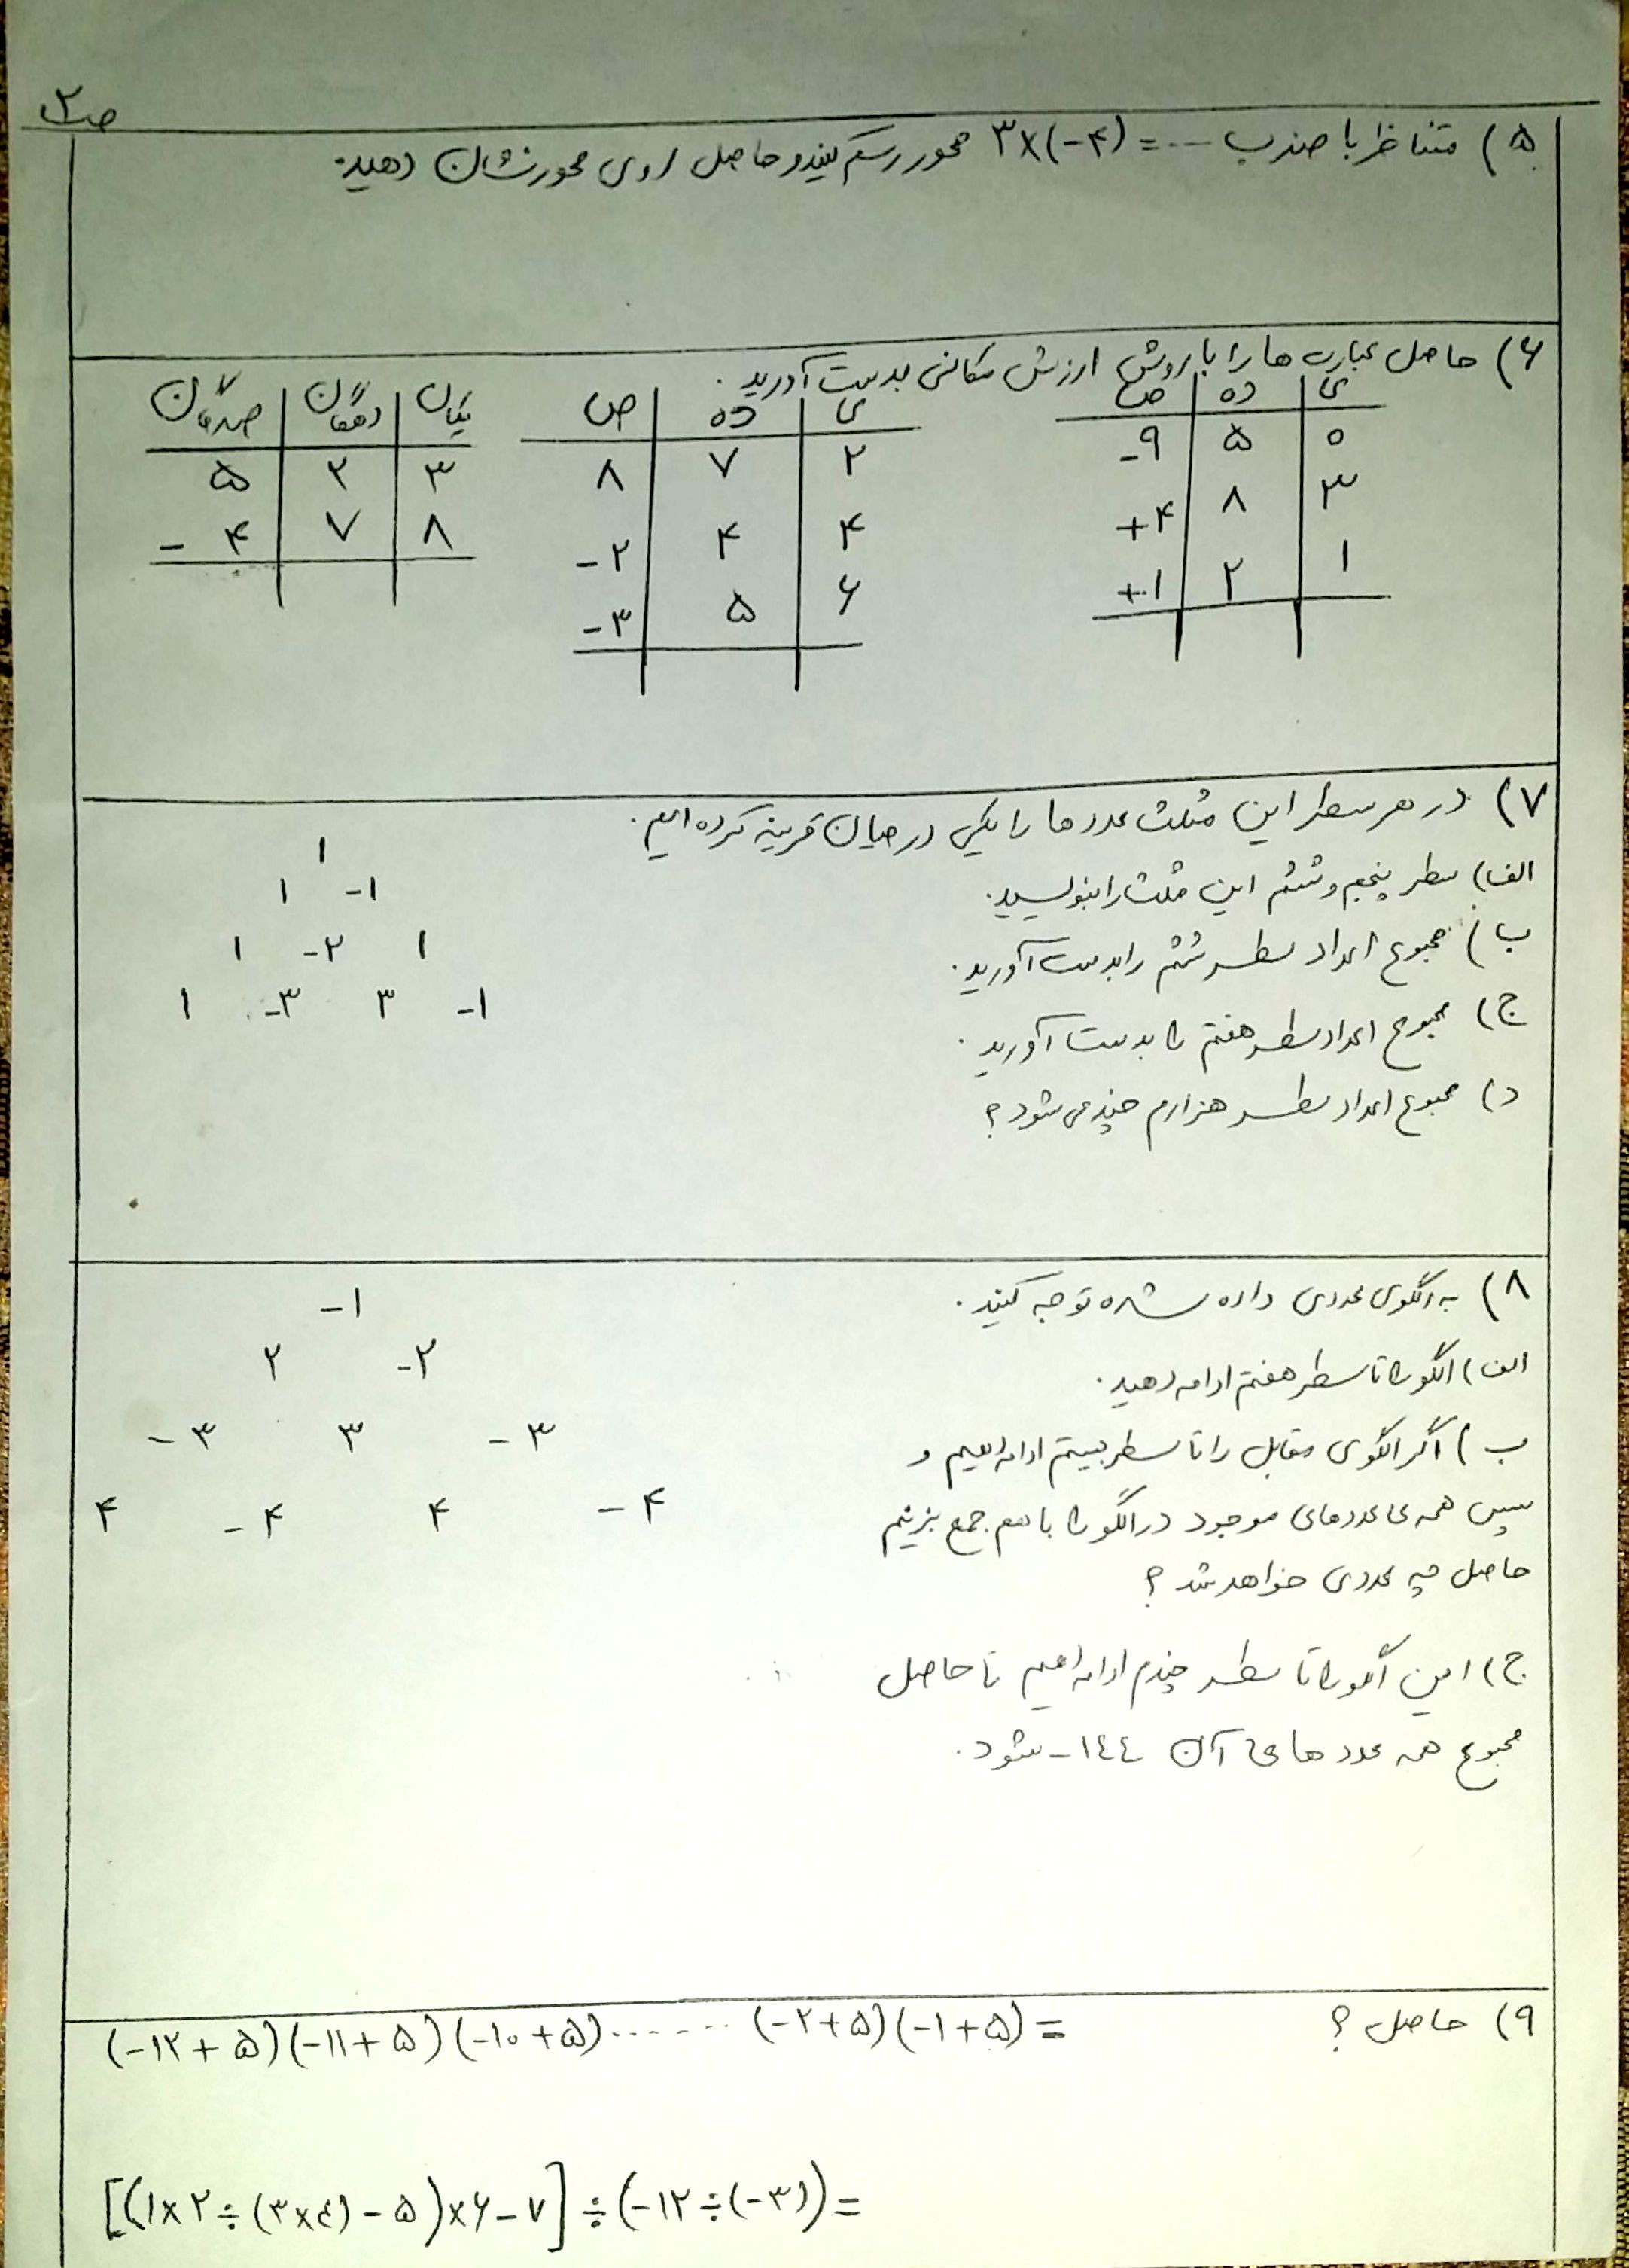 ص۲
۵) متناظر با ضرب ... = (۴-)×۳ محور رسم کنید و حاصل روی محور نشان دهید.
۶) حاصل عبارت ها را با روش ارزش مکانی بدست آورید.
ص ده ی
-۹ ۵ ۰
+۴ ۸ ۳
+۱ ۲ ۱
ص ده ی
۸ ۷ ۲
-۲ ۴ ۴
-۳ ۵ ۶
صدگان دهگان یکان
۵ ۲ ۳
- ۴ ۷ ۸
۷) در هر سطر این مثلث عددها را یکی در میان قرینه کرده ایم.
الف) سطر پنجم و ششم این مثلث را بنویسید.
ب) مجموع اعداد سطر ششم را بدست آورید.
ج) مجموع اعداد سطر هفتم را بدست آورید.
د) مجموع اعداد سطر هزارم چند می شود؟
۱
۱ -۱
۱ -۲ ۱
۱ -۳ ۳ -۱
۸) به الگوی عددی داده شده توجه کنید.
الف) الگو را تا سطر هفتم ادامه دهید.
ب) اگر الگوی مقابل را تا سطر بیستم ادامه دهیم و
سپس همه ی عددهای موجود در الگو را با هم جمع بزنیم
حاصل چه عددی خواهد شد؟
ج) این الگو را تا سطر چندم ادامه دهیم تا حاصل
مجموع همه عدد های آن ١٤٤- شود.
-۱
۲ -۲
-۳ ۳ -۳
۴ -۴ ۴ -۴
۹) حاصل؟
(-۱۲+۵)(-۱۱+۵)(-۱۰+۵)....... (-۲+۵)(-۱+۵)=
[(۱×۲÷(۳×٤)-۵)×۶-۷]÷(-۱۲÷(-۳))=